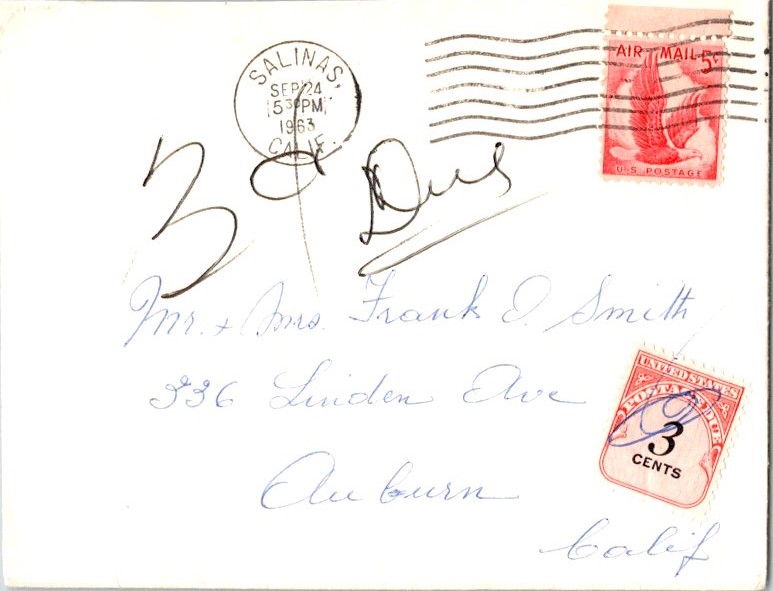 AIR MAIL 5¢
U S POSTAGE
SALINAS,
SEP 24
5 30 PM
1963
CALIF.
3¢ Due
Mr. & Mrs. Frank J. Smith
336 Linden Ave
Auburn
Calif
UNITED STATES
POSTAGE DUE
3
CENTS